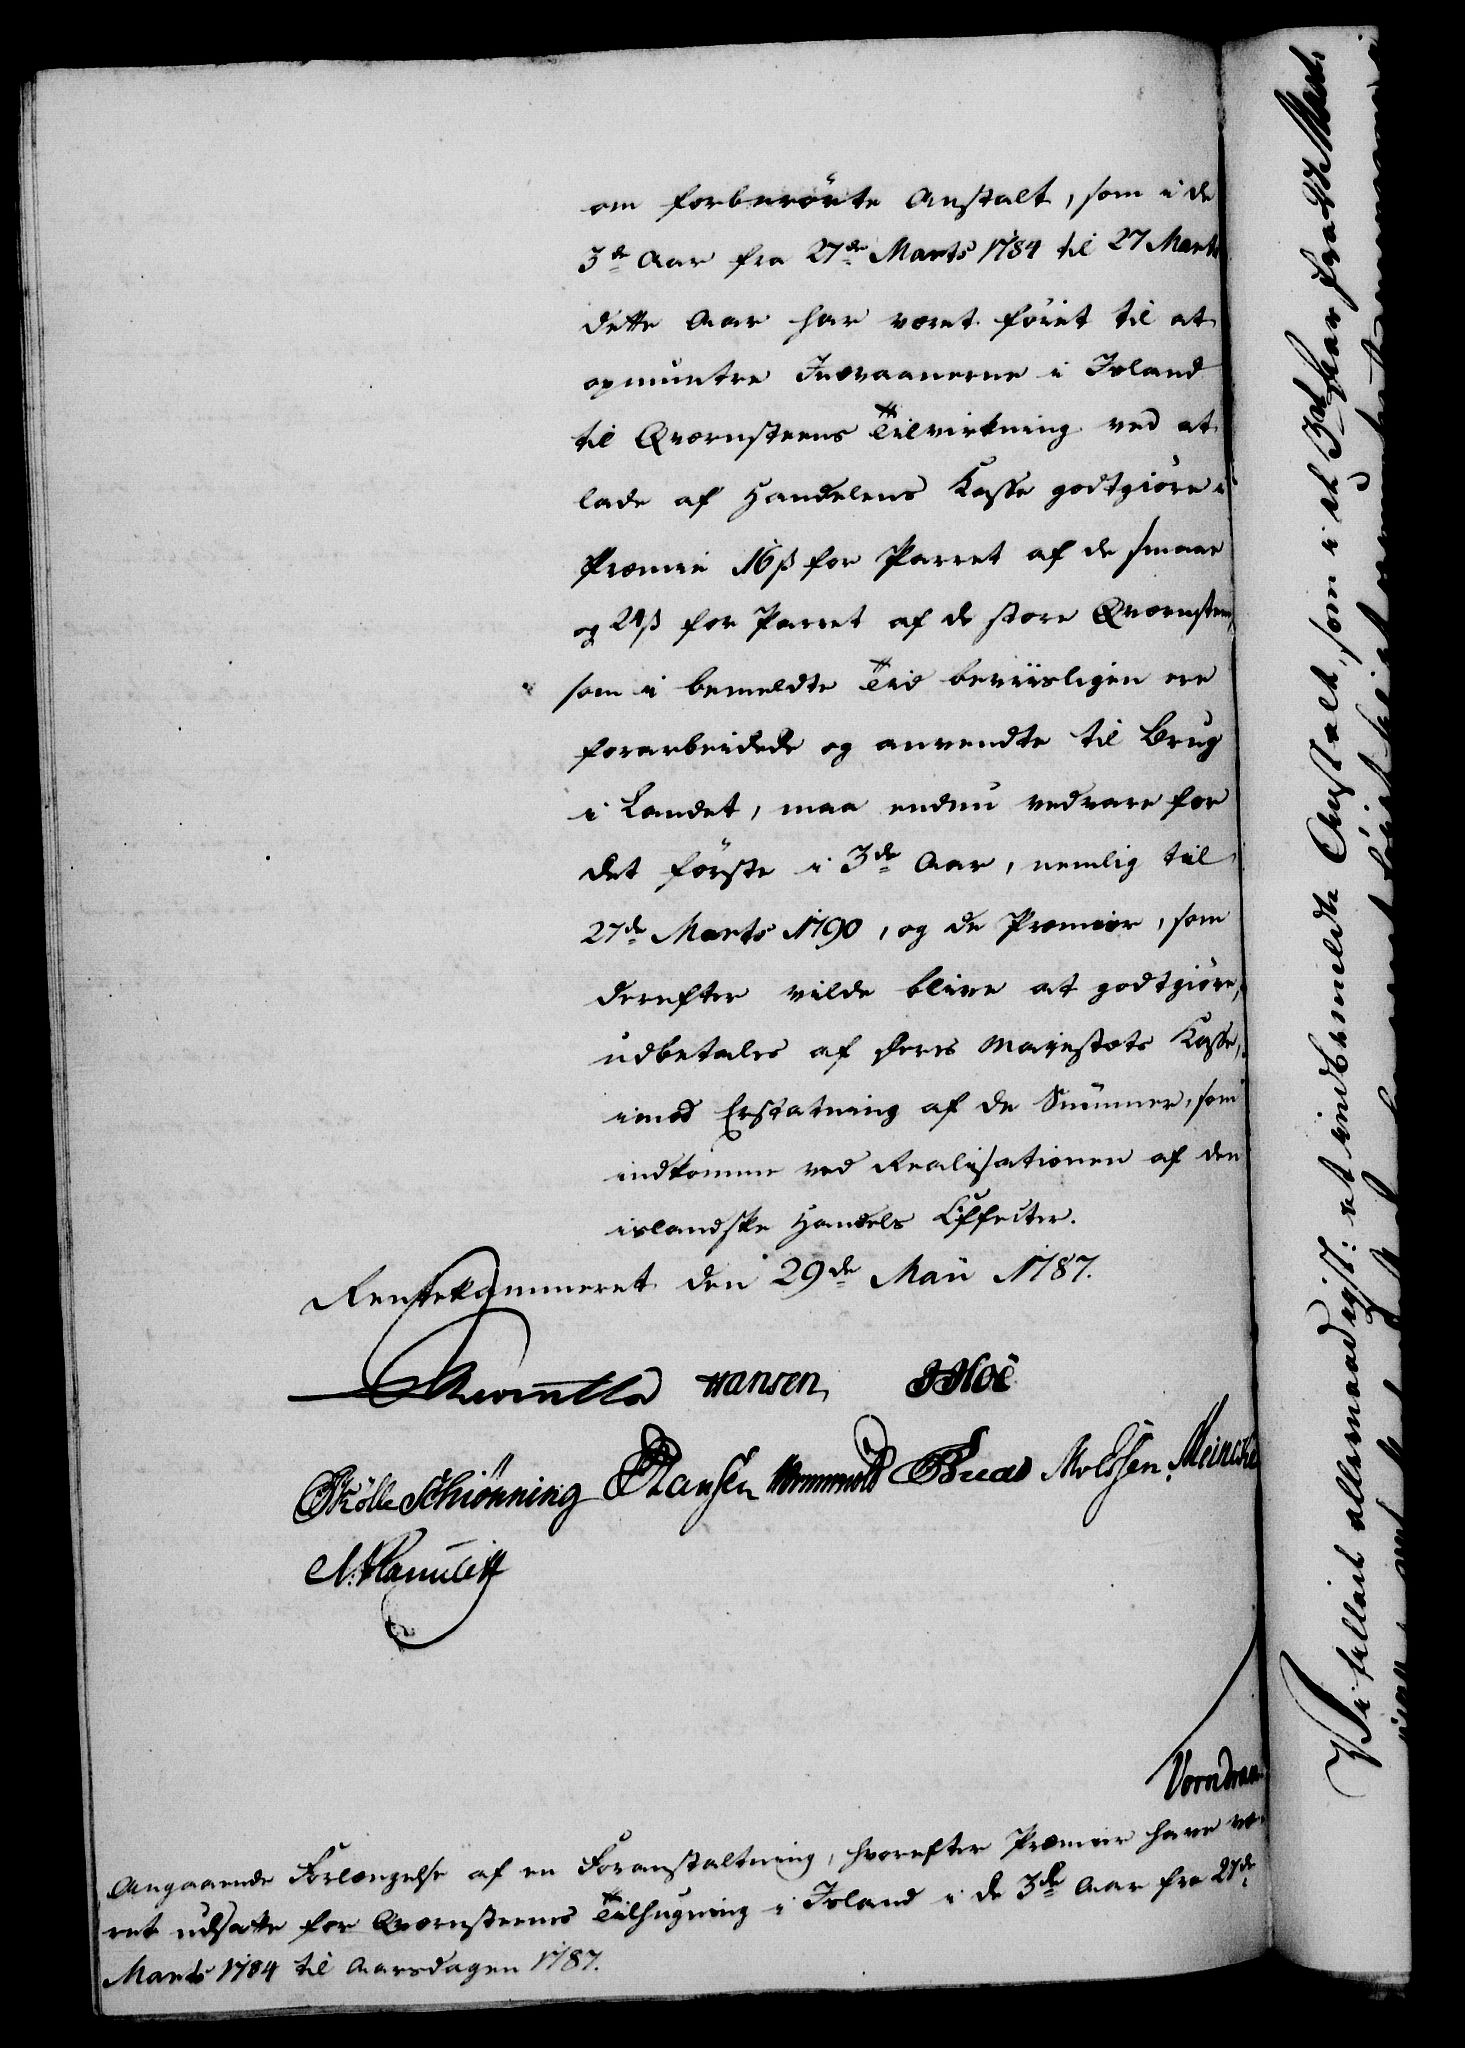 om forberörte Anstalt, som i de
3de Aar fra 27de Marts 1784 til 27 Marts
dette Aar har været föiet til at
opmuntre Indvaanerne i Island
til Qvernsteens Tilvirkning ved at
lade af Handelens Kasse godtgiöre i
Præmie 16 β for Parret af de smaae
og 24 β for Parret af de store Qvernsteen,
som i bemeldte Tid beviisligen ere
forarbeidede og anvendte til Brug
i Landet, maa endnu vedvare for
det förste i 3de Aar, nemlig til
27de Marts 1790, og de Præmier, som
derefter vilde blive at godtgiöre,
udbetales af Deres Majestæts Kasse,
imod Erstatning af de Summer, som
indkomme ved Realisationen af den
islandske Handels Effecter.
Rentekammeret den 29de Maii 1787.
Hansen
Schiönning Hansen Meincke
Angaaende Forlængelse af en Foranstaltning, hvorefter Præmier have væ-
ret udsatte for Qvernsteens Tilhugning i Island i de 3de Aar fra 27de
Marts 1784 til Aarsdagen 1787.
Vi tillade allernaadigst: at indbemeldte Anstalt, som i de 3de Aar fra 27 Mart.